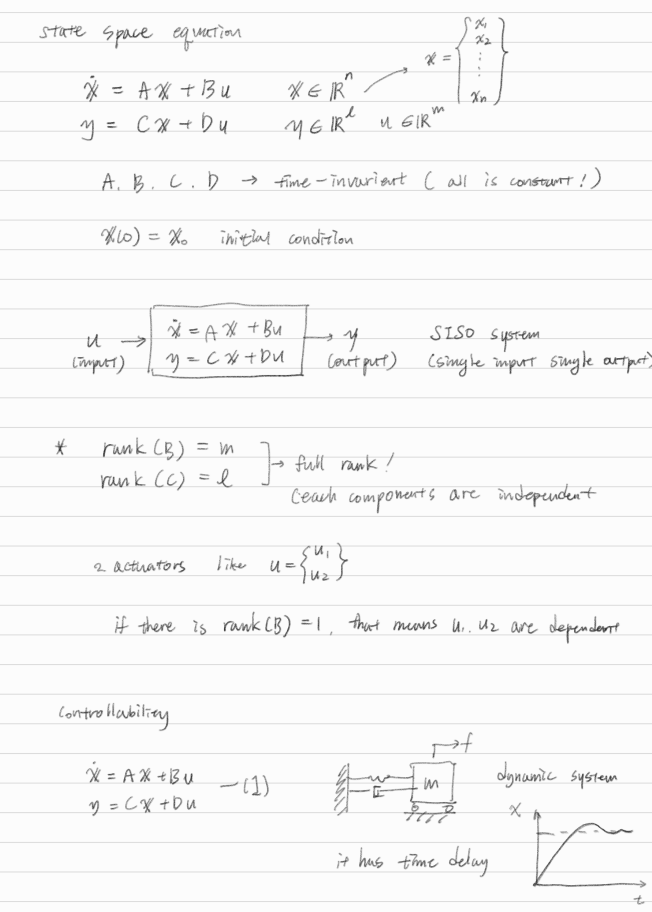 state space equation
ẋ = Ax + Bu    x ∈ ℝⁿ    x = { x₁ x₂ ⋮ xn }
y = Cx + Du    y ∈ ℝˡ  u ∈ ℝᵐ
A. B. C. D → time-invarient ( all is constant ! )
x(0) = x₀  initial condition
u → ẋ = Ax + Bu → y    SISO system
(input)  y = Cx + Du  (output)  (single input single output)
* rank (B) = m
rank (C) = l  → full rank !
(each components are independent
2 actuators like u = { u₁ u₂ }
if there is rank(B) = 1, that means u₁. u₂ are dependent
Controllability
ẋ = Ax + Bu
y = Cx + Du  —(1)
f
m  dynamic system
x
it has time delay
t